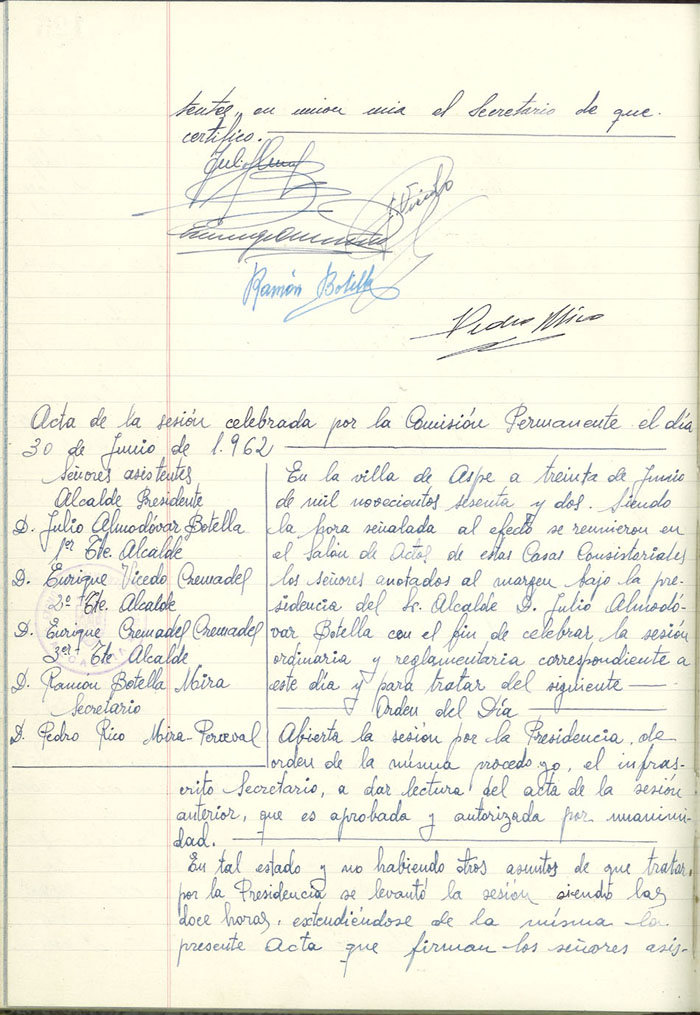 tentes, en union mia el Secretario de que
certifico.
E. Vicedo
Ramón Botella
Pedro Mira
Acta de la sesión celebrada por la Comisión Permanente el día
30 de Junio de 1.962
Señores asistentes
Alcalde Presidente
D. Julio Almodóvar Botella
1er Tte. Alcalde
D. Enrique Vicedo Cremades
2º Tte. Alcalde
D. Enrique Cremades Cremades
3er Tte Alcalde
D. Ramon Botella Mira
Secretario
D. Pedro Rico Mira-Perceval
En la villa de Aspe a treinta de Junio
de mil novecientos sesenta y dos. Siendo
la hora señalada al efecto se reunieron en
el Salón de Actos de estas Casas Consistoriales
los señores anotados al margen bajo la pre-
sidencia del Sr. Alcalde D. Julio Almodó-
var Botella con el fin de celebrar la sesión
ordinaria y reglamentaria correspondiente a
este día y para tratar del siguiente
Orden del Día
Abierta la sesión por la Presidencia, de
orden de la misma procedo yo, el infras-
crito Secretario, a dar lectura del acta de la sesión
anterior, que es aprobada y autorizada por unanimi-
dad.
En tal estado y no habiendo otros asuntos de que tratar,
por la Presidencia se levantó la sesión siendo las
doce horas, extendiéndose de la misma la
presente Acta que firman los señores asis-